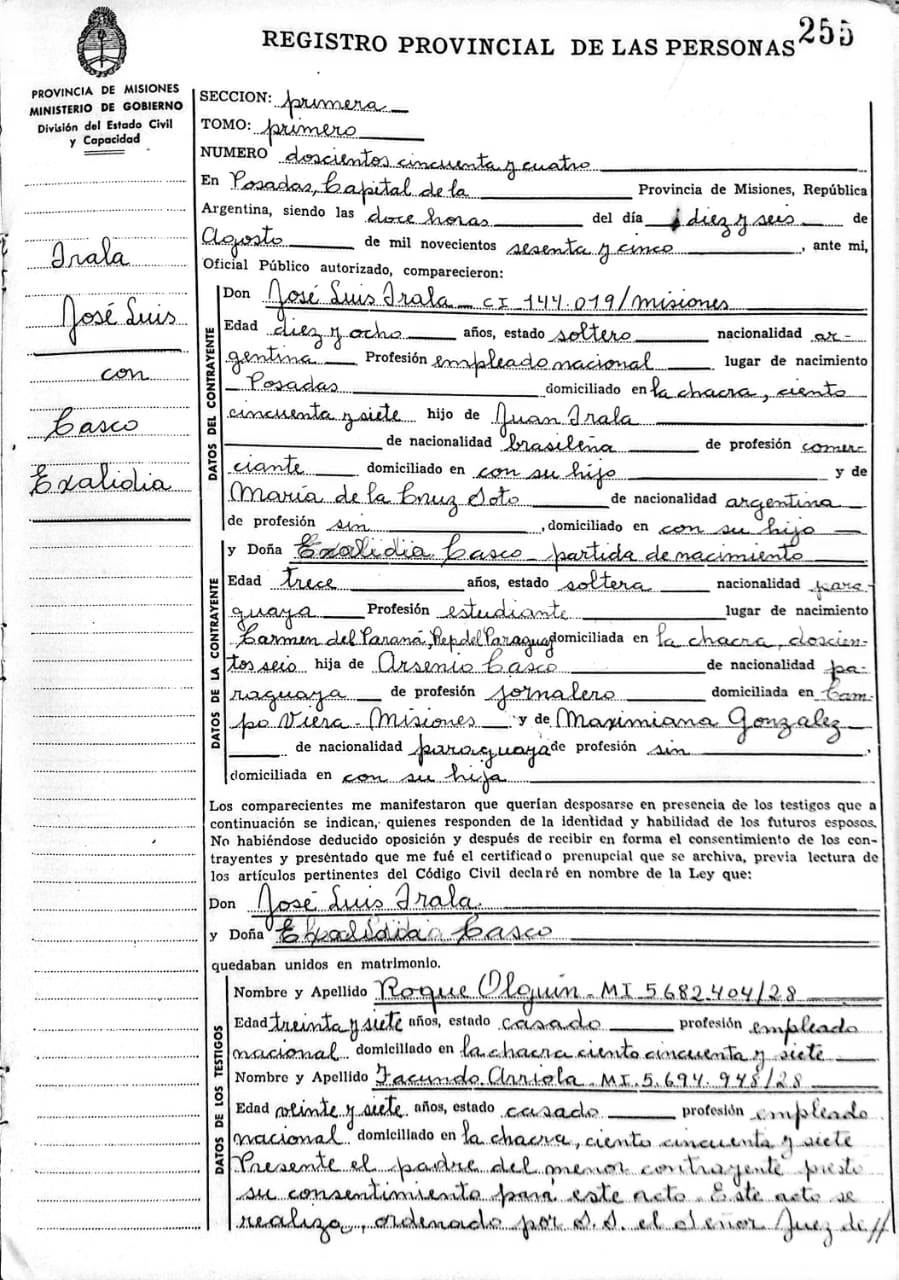 REGISTRO PROVINCIAL DE LAS PERSONAS 255
PROVINCIA DE MISIONES
MINISTERIO DE GOBIERNO
División del Estado Civil
y Capacidad
Irala
José Luis
con
Casco
Exalidia
SECCION: primera
TOMO: primero
NUMERO doscientos cincuenta y cuatro
En Posadas, Capital de la Provincia de Misiones, República
Argentina, siendo las doce horas del día diez y seis de
Agosto de mil novecientos sesenta y cinco, ante mi,
Oficial Público autorizado, comparecieron:
DATOS DEL CONTRAYENTE
Don José Luis Irala - CI 144.019/misiones
Edad diez y ocho años, estado soltero nacionalidad ar-
gentina Profesión empleado nacional lugar de nacimiento
Posadas domiciliado en la chacra, ciento
cincuenta y siete hijo de Juan Irala
de nacionalidad brasileña de profesión comer-
ciante domiciliado en con su hijo y de
María de la Cruz Soto de nacionalidad argentina
de profesión sin, domiciliado en con su hijo
DATOS DE LA CONTRAYENTE
y Doña Exalidia Casco - partida de nacimiento
Edad trece años, estado soltera nacionalidad para-
guaya Profesión estudiante lugar de nacimiento
Carmen del Paraná, Rep del Paraguay domiciliada en la chacra, doscien-
tos seis hija de Arsenio Casco de nacionalidad pa-
raguaya de profesión jornalero domiciliada en Cam-
po Viera - Misiones y de Maximiana Gonzalez
de nacionalidad paraguaya de profesión sin,
domiciliada en con su hija
Los comparecientes me manifestaron que querían desposarse en presencia de los testigos que a
continuación se indican, quienes responden de la identidad y habilidad de los futuros esposos.
No habiéndose deducido oposición y después de recibir en forma el consentimiento de los con-
trayentes y presentado que me fué el certificado prenupcial que se archiva, previa lectura de
los artículos pertinentes del Código Civil declaré en nombre de la Ley que:
Don José Luis Irala.
y Doña Exalidia Casco
quedaban unidos en matrimonio.
DATOS DE LOS TESTIGOS
Nombre y Apellido Roque Olguin - MI 5682.404/28
Edad treinta y siete años, estado casado profesión empleado
nacional domiciliado en la chacra ciento cincuenta y siete
Nombre y Apellido Facundo Arriola - MI 5.694.948/28
Edad veinte y siete años, estado casado profesión empleado
nacional domiciliado en la chacra, ciento cincuenta y siete
Presente el padre del menor contrayente presto
su consentimiento para este acto. Este acto se
realiza, ordenado por S.S. el Señor Juez de //